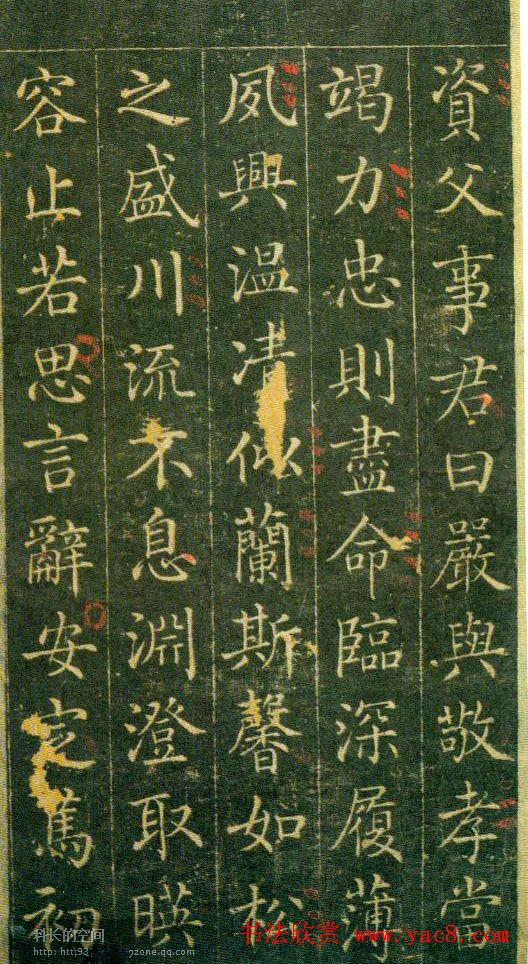 資父事君曰嚴與敬孝當
竭力忠則盡命臨深履薄
夙興溫凊似蘭斯馨如松
之盛川流不息淵澄取暎
容止若思言辭安定篤初
科长的空间
书法欣赏 www.yac8.com